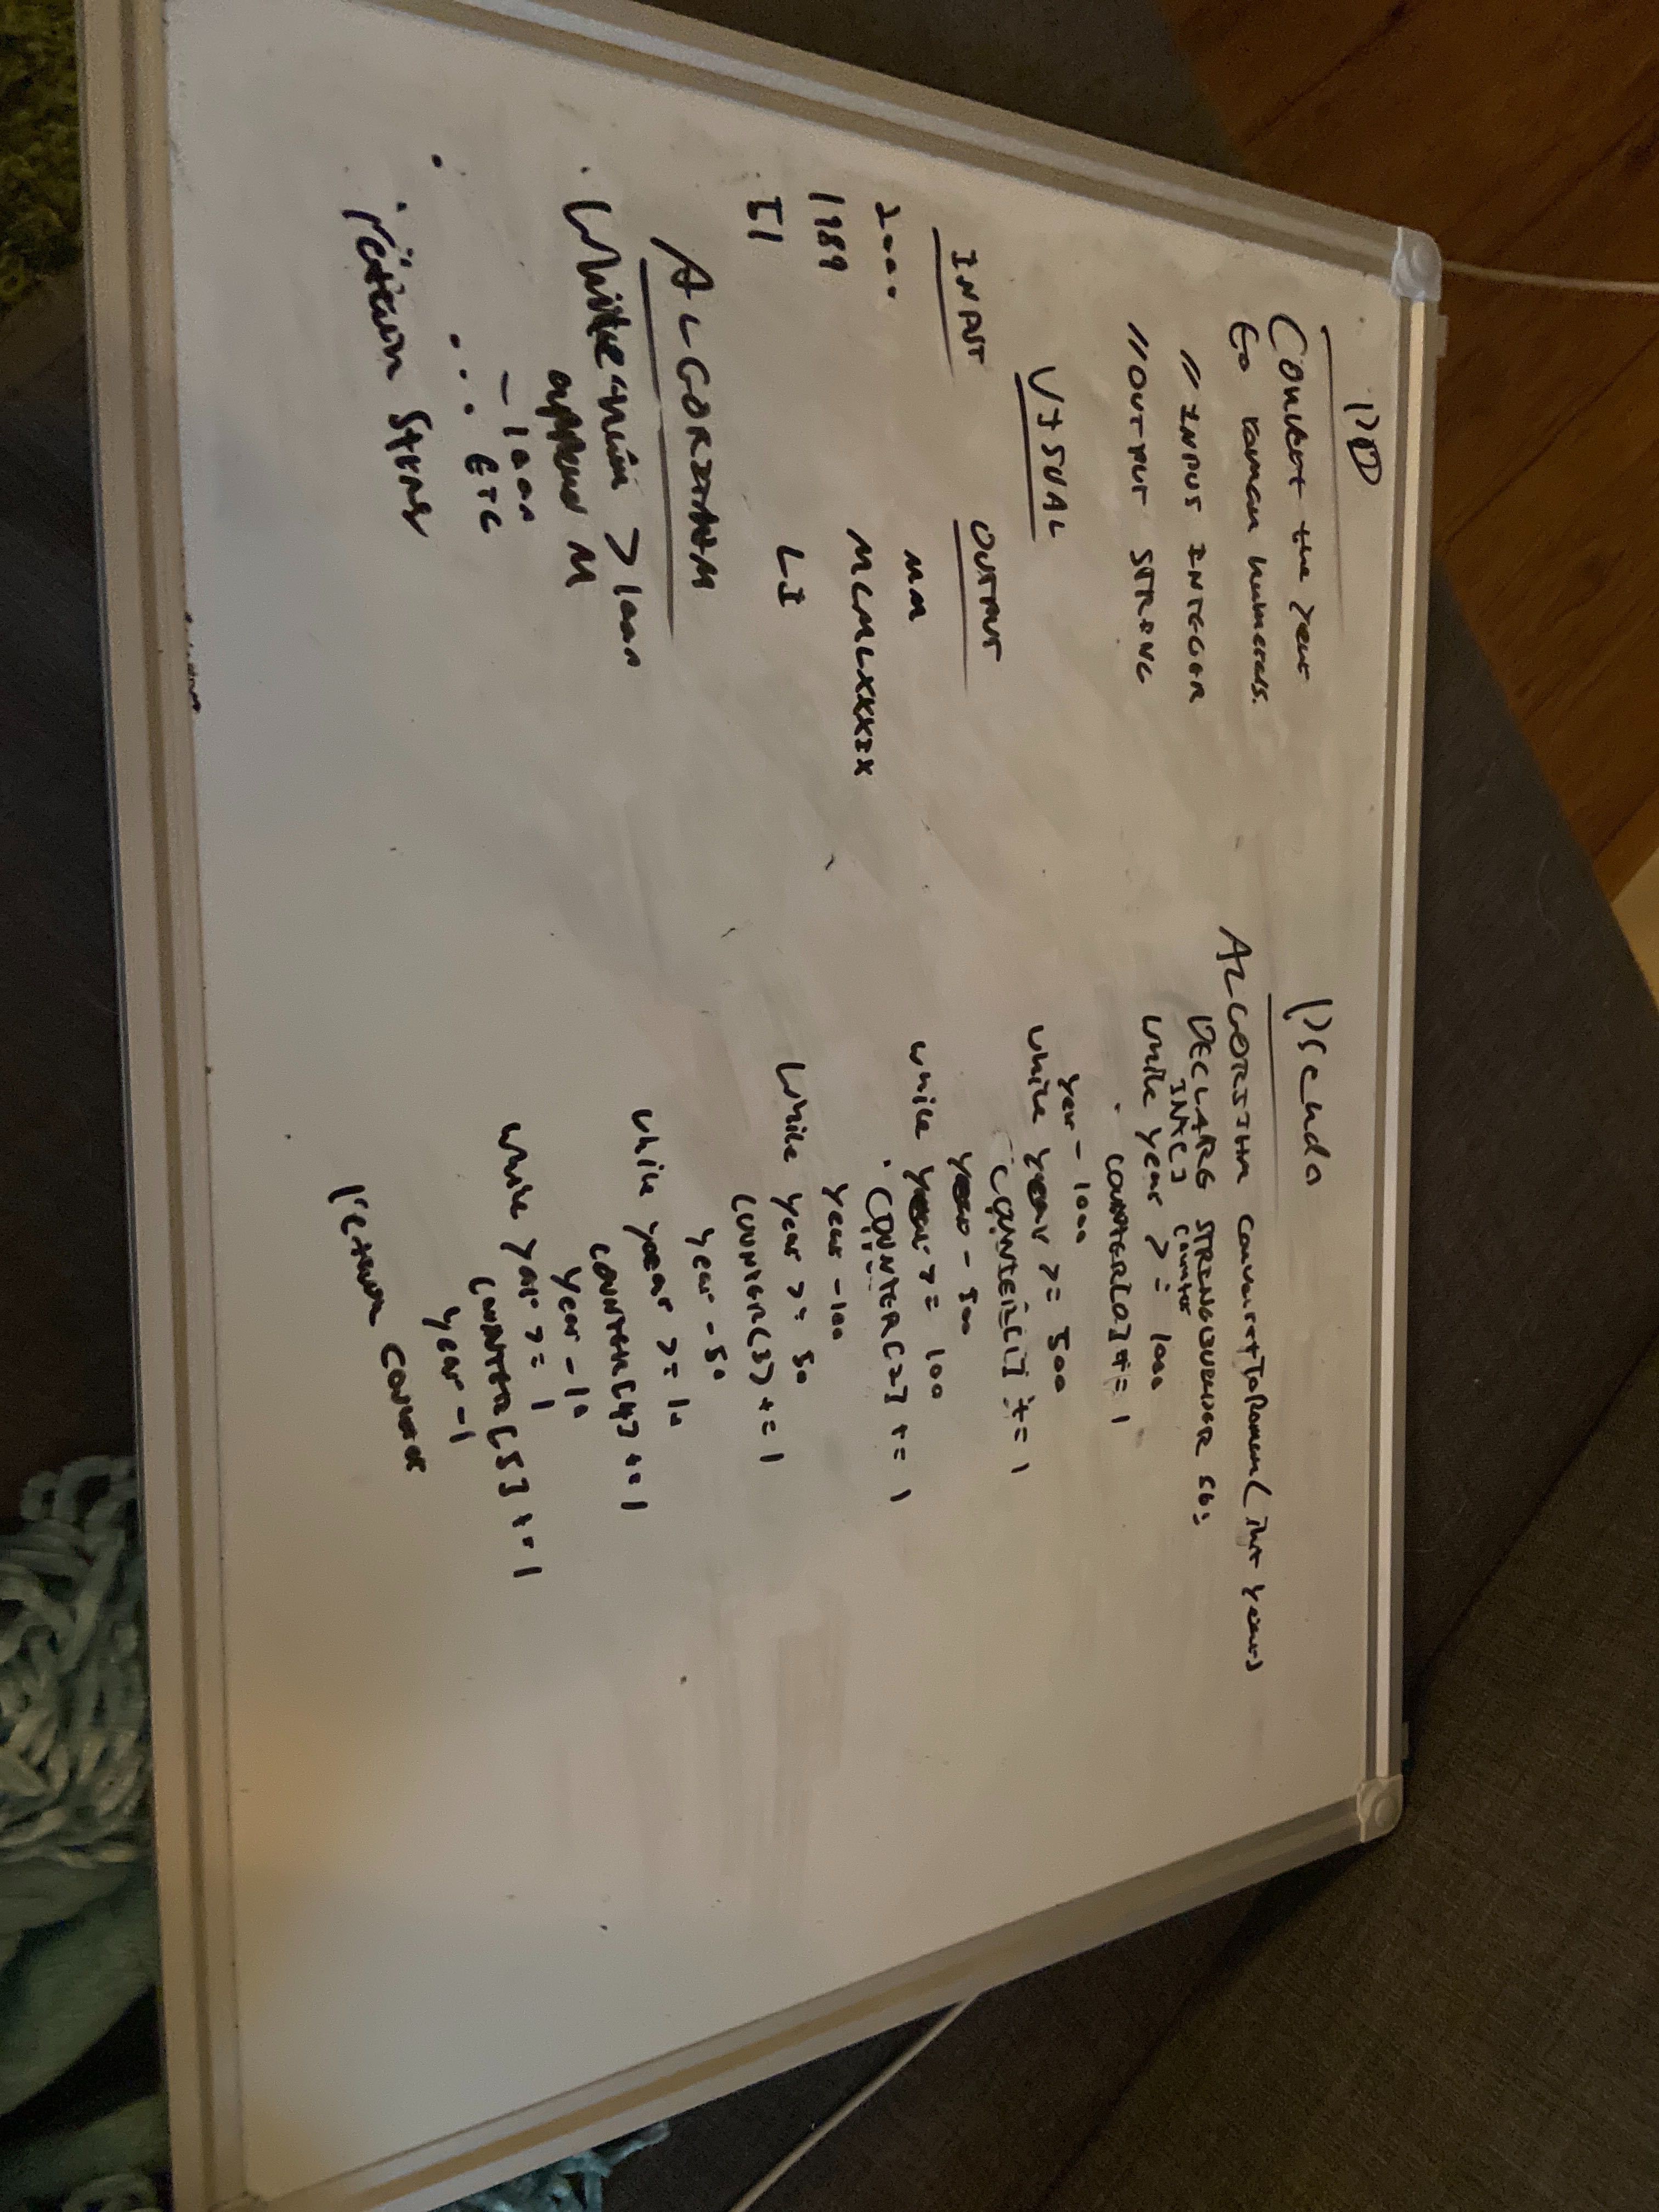 PD
Convert the year
to roman numerals.
// INPUT INTEGER
// OUTPUT STRING
VISUAL
INPUT OUTPUT
2000 MM
1989 MCMLXXXIX
51 LI
ALGORITHM
. While > 1000
append M
- 1000
... ETC
. return String
Pseudo
ALGORITHM convertToRoman(int year)
DECLARE STRINGBUILDER sb;
INT[] counter
while year >= 1000
COUNTER[0] += 1
year - 1000
while year >= 500
COUNTER[1] += 1
year - 500
while year >= 100
COUNTER[2] += 1
year - 100
while year >= 50
COUNTER[3] += 1
year - 50
while year >= 10
COUNTER[4] += 1
year - 10
while year >= 1
COUNTER[5] += 1
year - 1
return